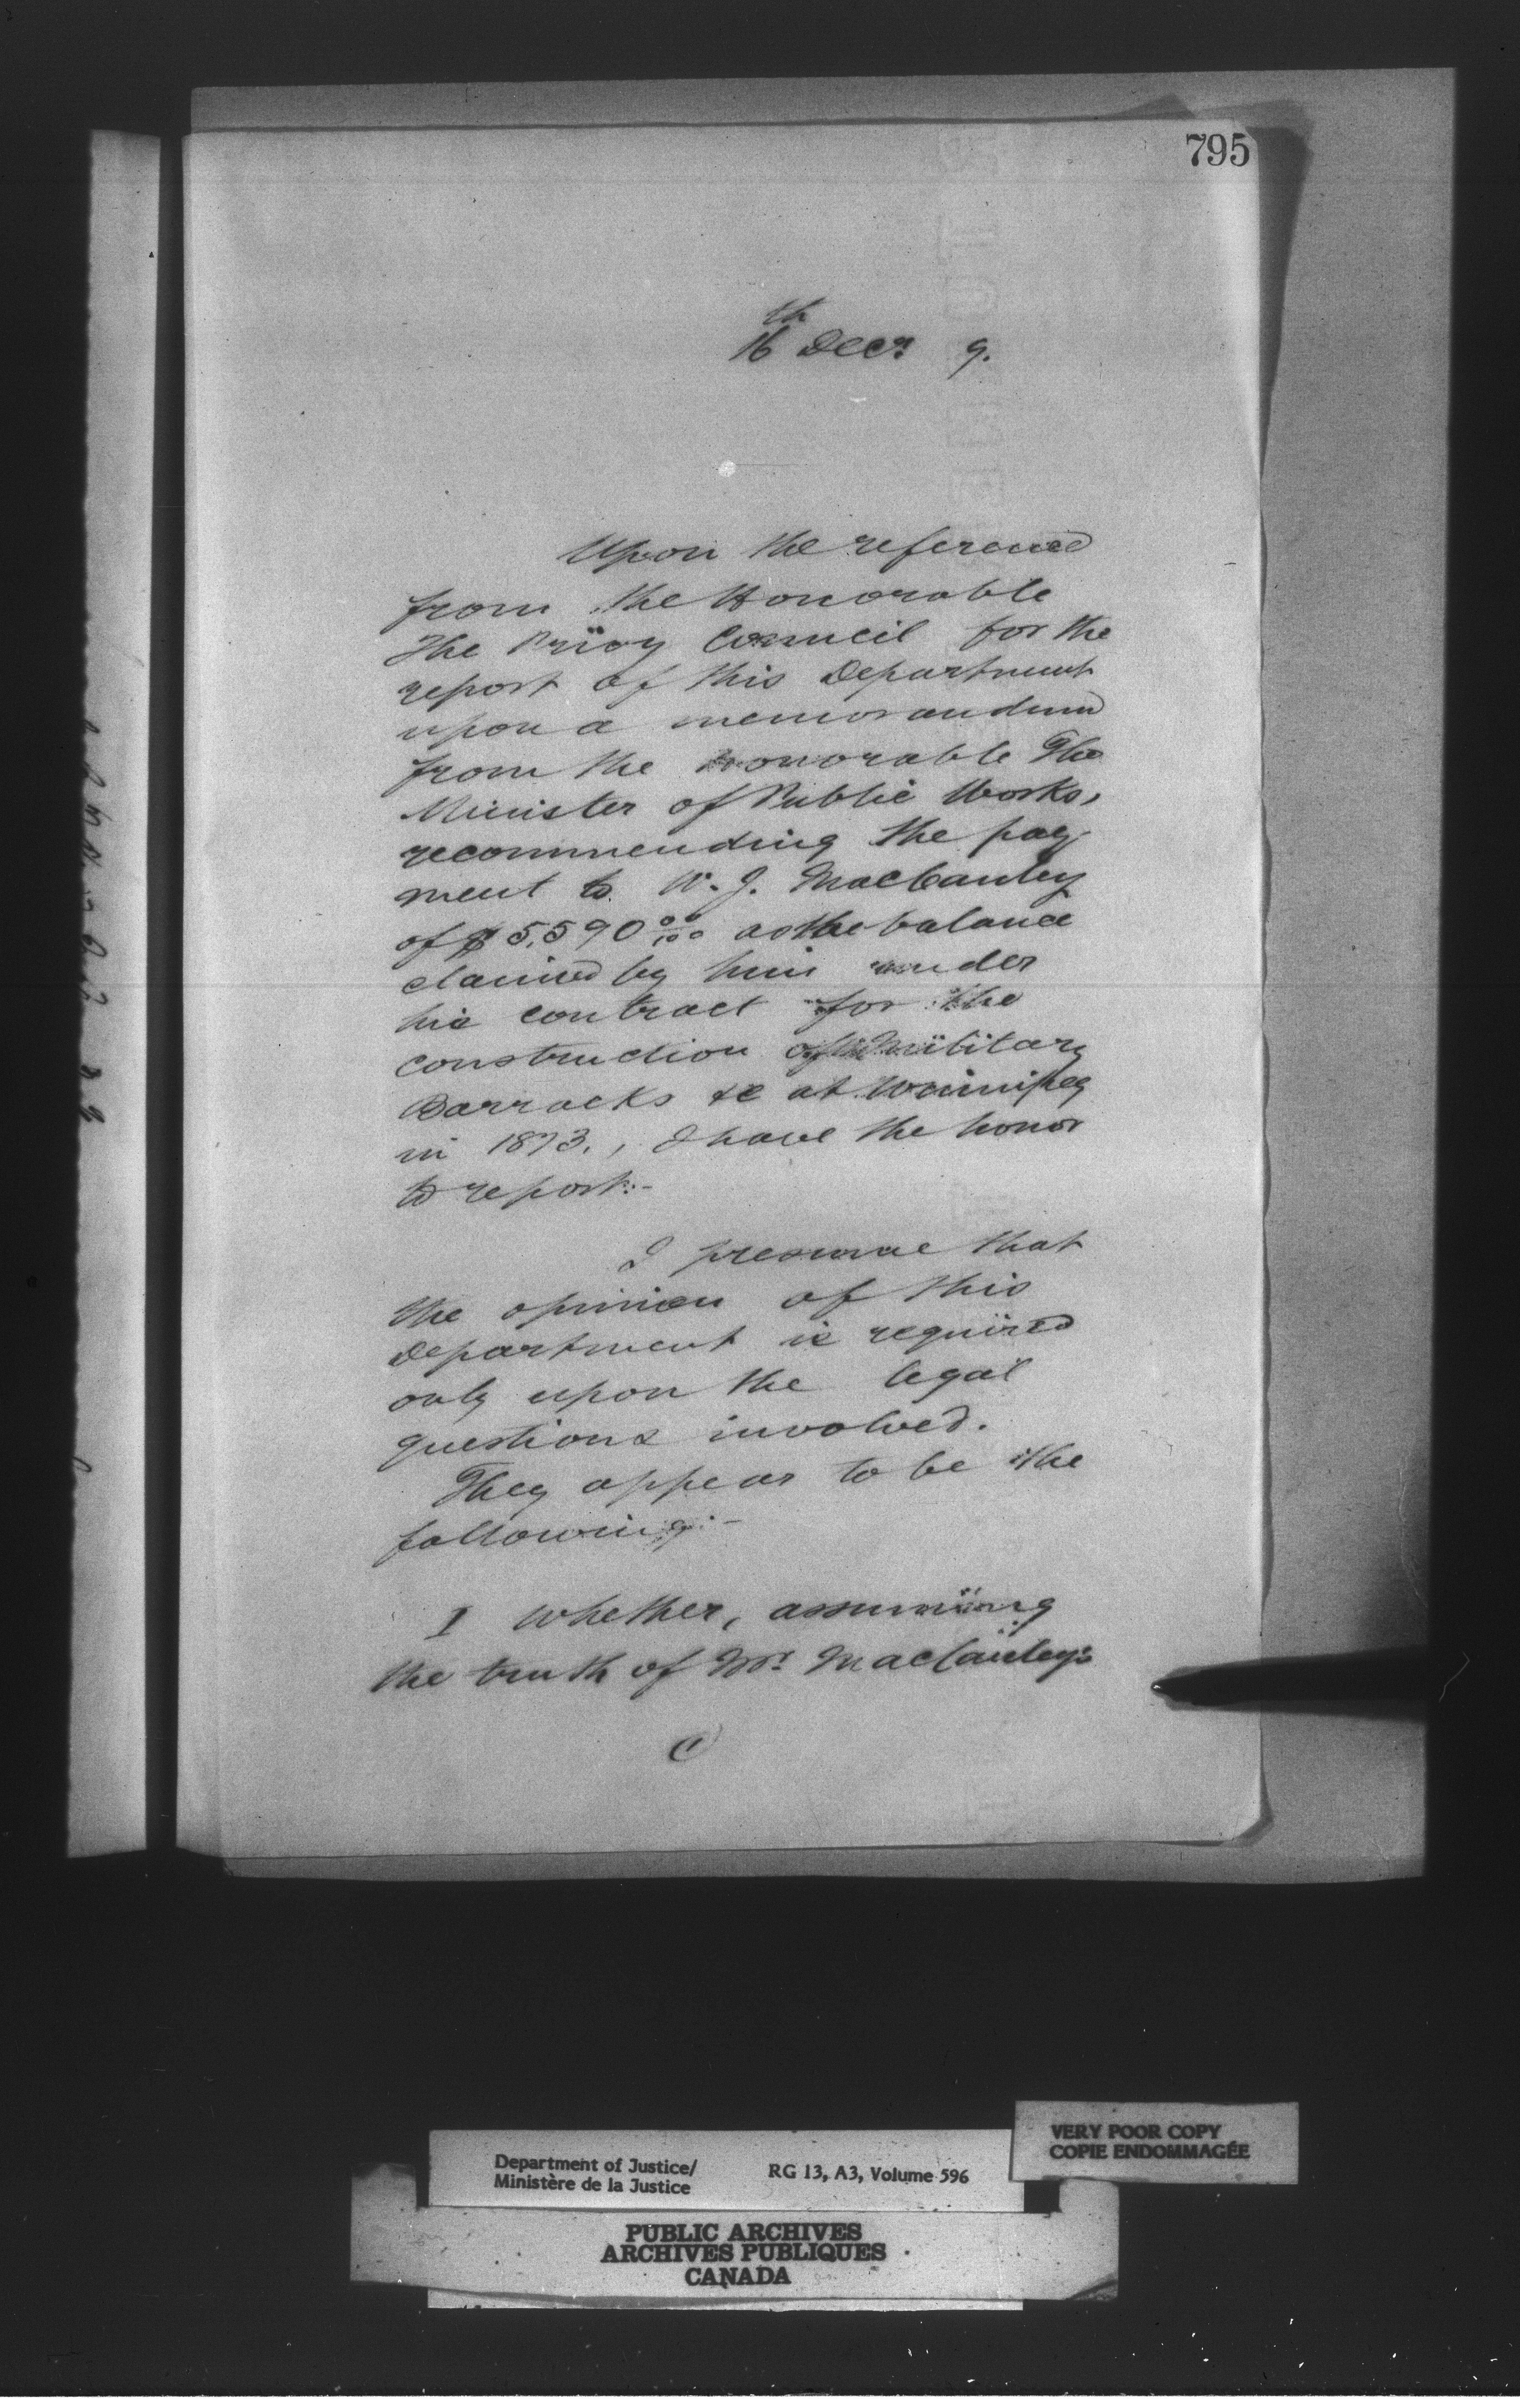 795
16th Decr 9.
Upon the reference
from the Honorable
The Privy Council for the
report of this Department
upon a memorandum
from the Honorable The
Minister of Public Works,
recommending the pay-
ment to W. J. MacCauley
of $5,590 00/100 as the balance
claimed by him under
his contract for the
construction of Military
Barracks &c at Winnipeg
in 1873., I have the honor
to report:-
I presume that
the opinion of this
Department is required
only upon the legal
questions involved.
They appear to be the
following:-
I Whether, assuming
the truth of Mr. MacCauley's
VERY POOR COPY
COPIE ENDOMMAGÉE
Department of Justice/
Ministère de la Justice
RG 13, A3, Volume 596
PUBLIC ARCHIVES
ARCHIVES PUBLIQUES
CANADA